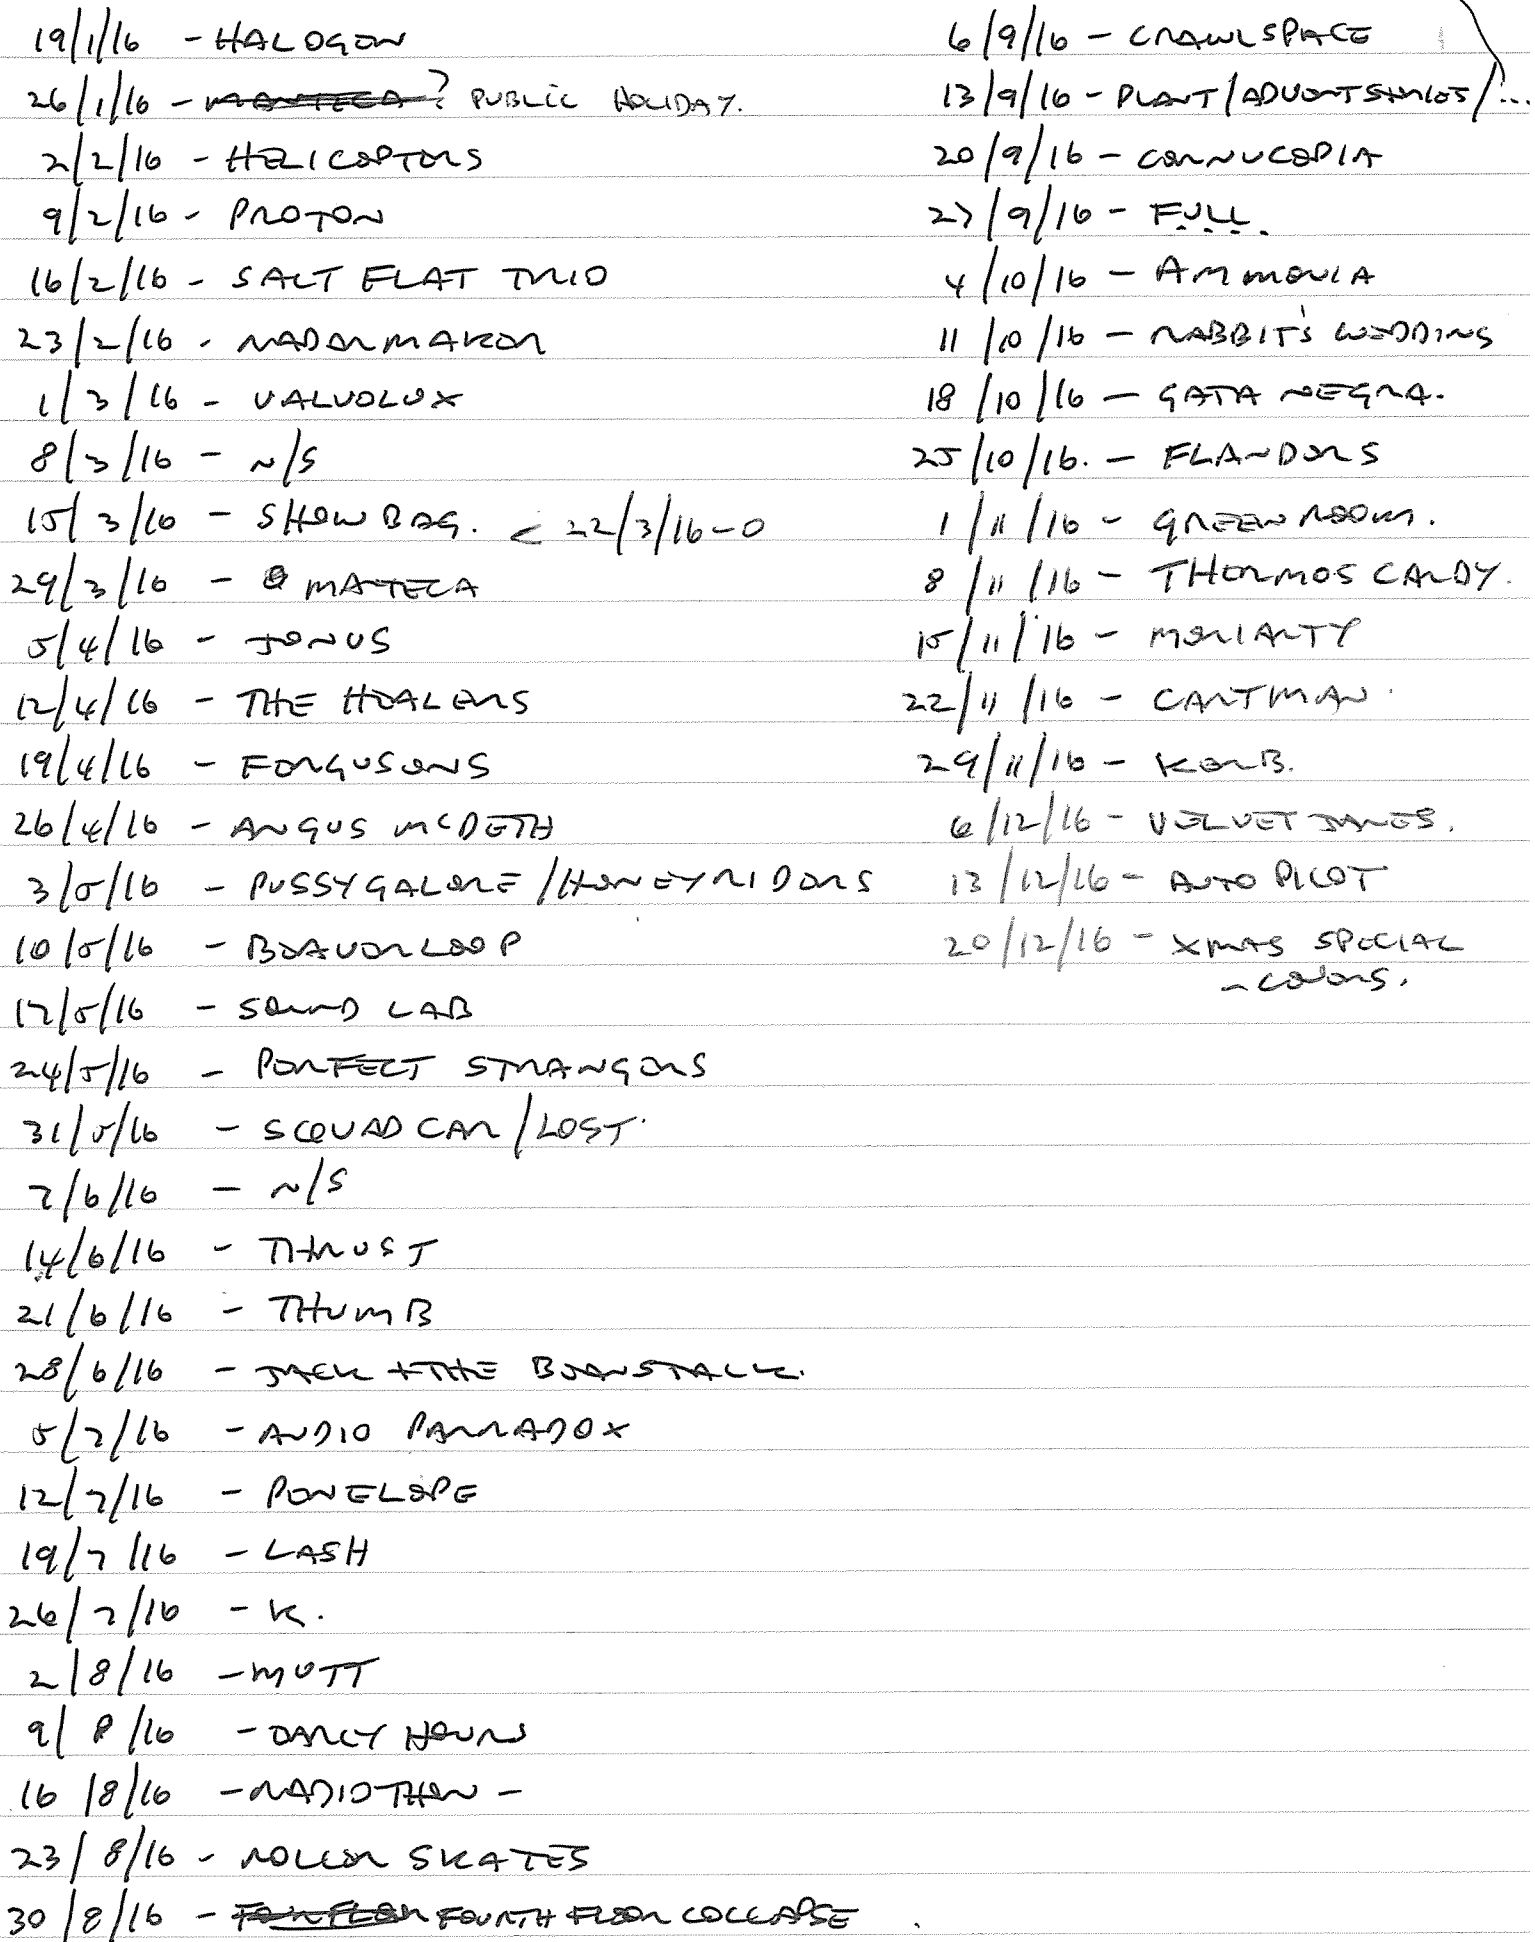 19/1/16 - HALOGEN
26/1/16 - MANTECA? PUBLIC HOLIDAY.
2/2/16 - HELICOPTERS
9/2/16 - PROTON
16/2/16 - SALT FLAT TRIO
23/2/16 - RADARMAKER
1/3/16 - VALVOLUX
8/3/16 - N/S
15/3/16 - SHOWBAG. < 22/3/16-0
29/3/16 - MANTECA
5/4/16 - JENUS
12/4/16 - THE HEALERS
19/4/16 - FERGUSONS
26/4/16 - ANGUS MCDETH
3/5/16 - PUSSYGALORE/HONEYRIDERS
10/5/16 - BEAVERLOOP
17/5/16 - SOUND LAB
24/5/16 - PERFECT STRANGERS
31/5/16 - SCQUAD CAR/LOST.
7/6/16 - N/S
14/6/16 - THRUST
21/6/16 - THUMB
28/6/16 - JACK + THE BEANSTALK.
5/7/16 - AUDIO PARRADOX
12/7/16 - PENELOPE
19/7/16 - LASH
26/7/16 - K.
2/8/16 - MUTT
9/8/16 - DARCY HOURS
16/8/16 - RADIOTHON -
23/8/16 - ROLLER SKATES
30/8/16 - FOURTH FLOOR COLLAPSE
6/9/16 - CRAWLSPACE
13/9/16 - PLANT/ADVENT STORIES/...
20/9/16 - CORNUCOPIA
27/9/16 - F.U.L.L.
4/10/16 - AMMONIA
11/10/16 - RABBIT'S WEDDING
18/10/16 - GATA NEGRA.
25/10/16. - FLANDERS
1/11/16 - GREEN ROOM.
8/11/16 - THERMOS CARDY.
15/11/16 - MORIARTY
22/11/16 - CARTMAN
29/11/16 - KERB.
6/12/16 - VELVET JANES.
13/12/16 - AUTO PILOT
20/12/16 - XMAS SPECIAL
- COLORS.